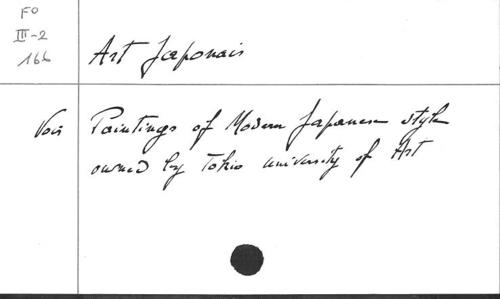 FO
III-2
166
Art Japonais
Voir Paintings of Modern Japanese style
owned by Tokio university of Art